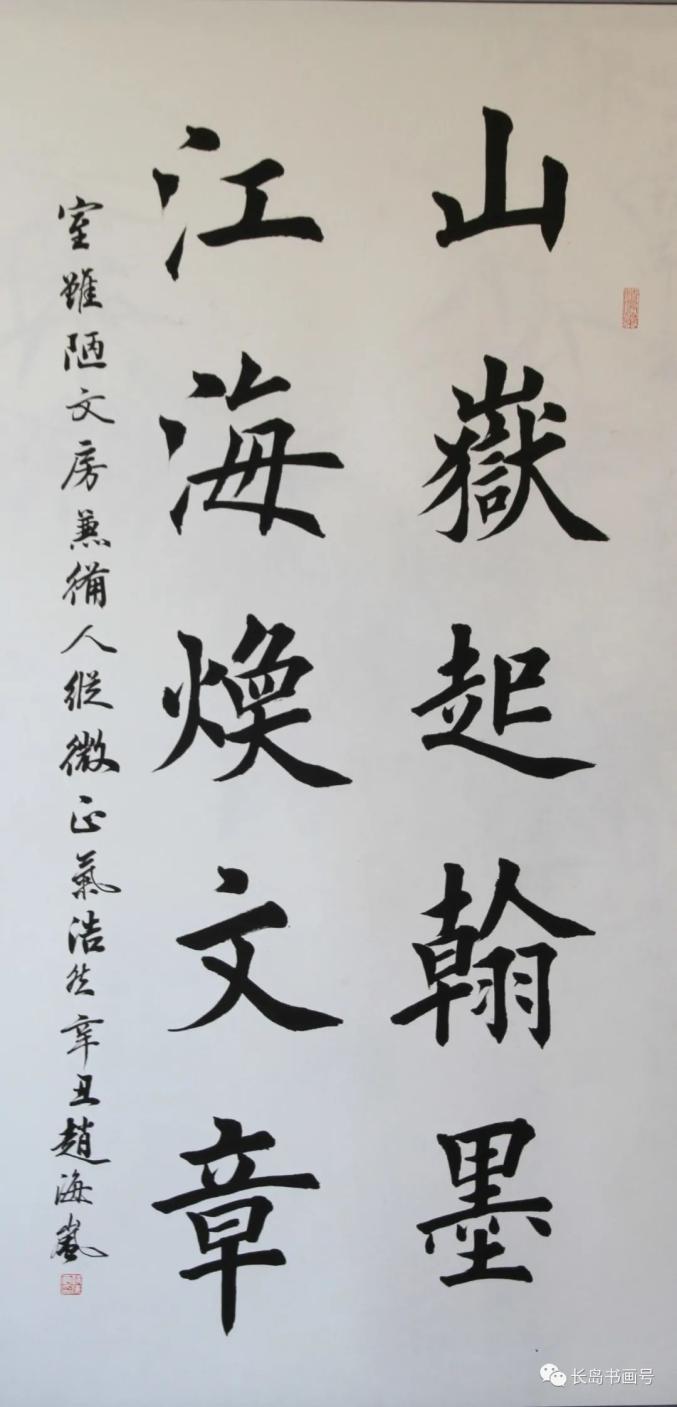 山嶽起翰墨
江海煥文章
室雖陋文房兼備人縱微正氣浩然辛丑趙海嵐
长岛书画号